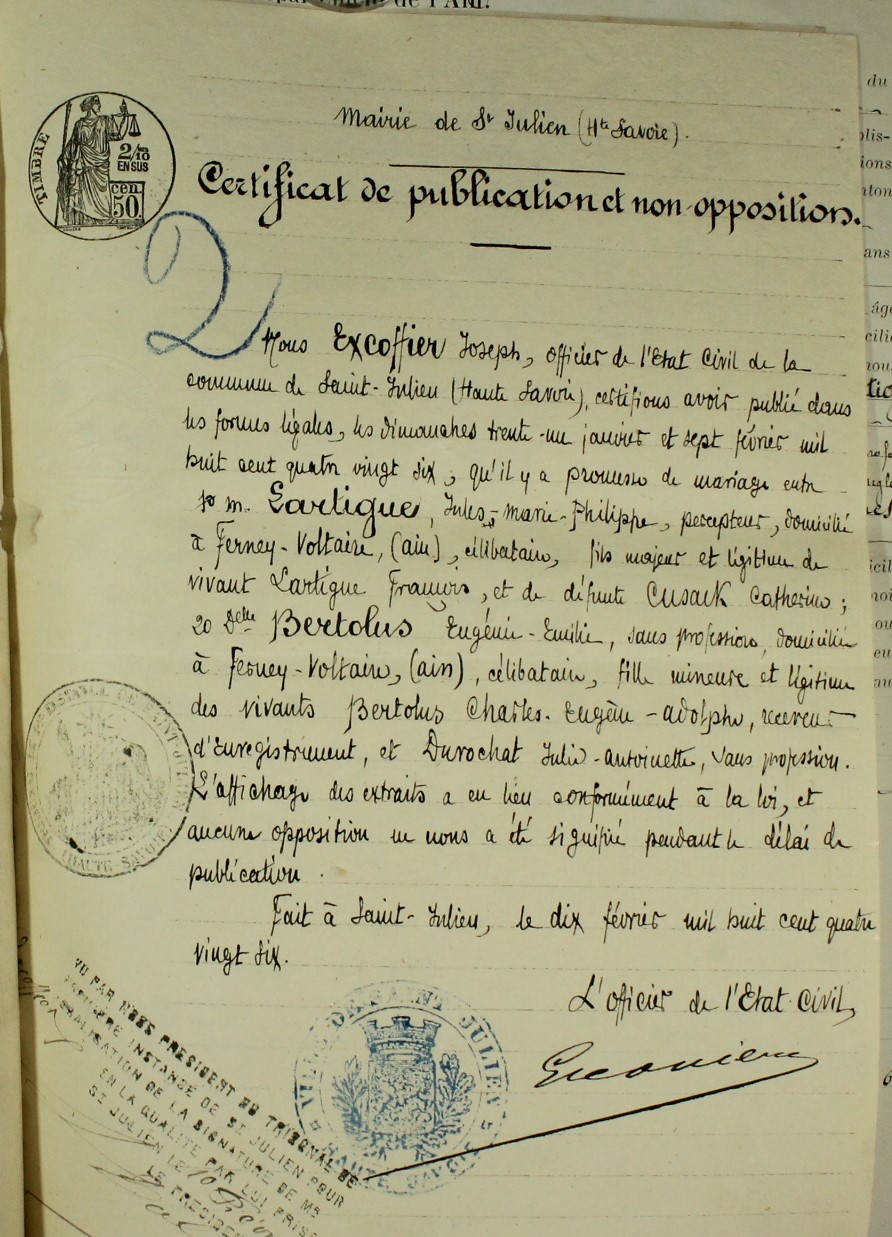 de l'Ain.
Mairie de St Julien (Hte Savoie).
TIMBRE
2/10
EN SUS
cen
50
Certificat de publication et non opposition.
2
Nous Excoffier Joseph, officier de l'Etat Civil de la
commune de Saint-Julien (Haute Savoie), certifions avoir publié dans
les formes légales, les dimanches trente-un janvier et sept février mil
huit cent quatre vingt six, qu'il y a promesse de mariage entre
1o m. Lartigue, Jules-Marie-Philippe, percepteur, domicilié
à Ferney-Voltaire, (ain), célibataire, fils majeur et légitime de
vivant Lartigue François, et de défunte Cusack Catherine;
2o Delle Bertolus Eugénie-Emilie, sans profession, domiciliée
à Ferney-Voltaire, (ain), célibataire, fille mineure et légitime
des vivants Bertolus Charles-Eugène-adolphe, receveur
d'Enregistrement, et Durochat Julie-antoinette, sans profession.
L'affichage des extraits a eu lieu conformément à la loi, et
aucune opposition ne nous a été signifiée pendant le délai de
publication.
Fait à Saint-Julien, le dix février mil huit cent quatre
vingt six.
L'officier de l'Etat Civil,
VILLE DE SAINT JULIEN
HAUTE SAVOIE
(HAUTE SAVOIE)
VU PAR NOUS PRESIDENT DU TRIBUNAL DE
PREMIERE INSTANCE DE ST JULIEN POUR
LEGALISATION DE LA SIGNATURE DE Mr
EN LA QUALITE PAR LUI PRISE
ST JULIEN LE 10
LE PRESIDENT